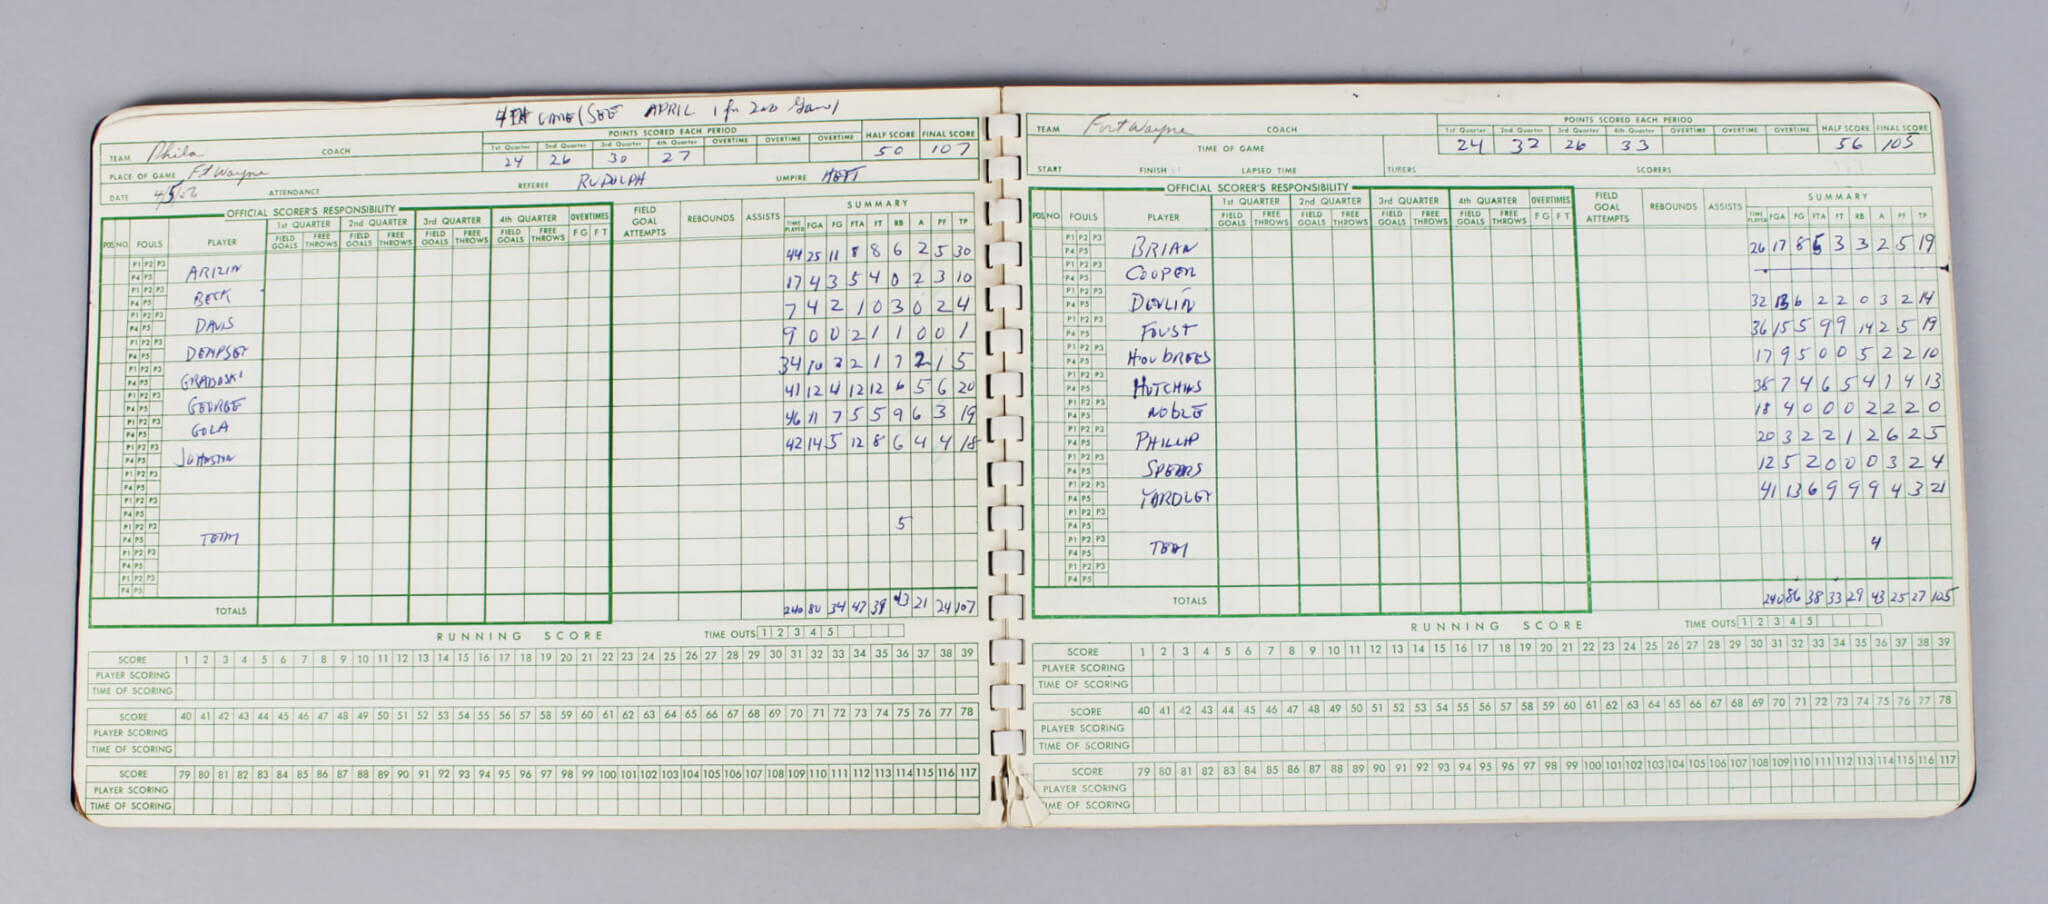 4TH GAME (SEE APRIL 1 for 2nd Game)
POINTS SCORED EACH PERIOD
1st Quarter 2nd Quarter 3rd Quarter 4th Quarter OVERTIME OVERTIME OVERTIME HALF SCORE FINAL SCORE
TEAM Phila COACH 24 26 30 27 50 107
PLACE OF GAME Ft Wayne REFEREE RUDOLPH UMPIRE HEFT
DATE 4/5/56 ATTENDANCE
OFFICIAL SCORER'S RESPONSIBILITY
1st QUARTER 2nd QUARTER 3rd QUARTER 4th QUARTER OVERTIMES FIELD GOAL ATTEMPTS REBOUNDS ASSISTS SUMMARY
POS. NO. FOULS PLAYER FIELD GOALS FREE THROWS FIELD GOALS FREE THROWS FIELD GOALS FREE THROWS FIELD GOALS FREE THROWS F G F T TIME PLAYED FGA FG FTA FT RB A PF TP
P1 P2 P3 P4 P5 ARIZIN 44 25 11 8 8 6 2 5 30
P1 P2 P3 P4 P5 BECK 17 4 3 5 4 0 2 3 10
P1 P2 P3 P4 P5 DAVIS 7 4 2 1 0 3 0 2 4
P1 P2 P3 P4 P5 DEMPSEY 9 0 0 2 1 1 0 0 1
P1 P2 P3 P4 P5 GRABOSKI 34 10 2 2 1 7 2 1 5
P1 P2 P3 P4 P5 GEORGE 41 12 4 12 12 6 5 6 20
P1 P2 P3 P4 P5 GOLA 46 11 7 5 5 9 6 3 19
P1 P2 P3 P4 P5 JOHNSTON 42 14 5 12 8 6 4 4 18
P1 P2 P3 P4 P5
P1 P2 P3 P4 P5
P1 P2 P3 P4 P5 TEAM 5
P1 P2 P3 P4 P5
P1 P2 P3 P4 P5
TOTALS 240 80 34 47 39 43 21 24 107
RUNNING SCORE TIME OUTS 1 2 3 4 5
SCORE 1 2 3 4 5 6 7 8 9 10 11 12 13 14 15 16 17 18 19 20 21 22 23 24 25 26 27 28 29 30 31 32 33 34 35 36 37 38 39
PLAYER SCORING
TIME OF SCORING
SCORE 40 41 42 43 44 45 46 47 48 49 50 51 52 53 54 55 56 57 58 59 60 61 62 63 64 65 66 67 68 69 70 71 72 73 74 75 76 77 78
PLAYER SCORING
TIME OF SCORING
SCORE 79 80 81 82 83 84 85 86 87 88 89 90 91 92 93 94 95 96 97 98 99 100 101 102 103 104 105 106 107 108 109 110 111 112 113 114 115 116 117
PLAYER SCORING
TIME OF SCORING
POINTS SCORED EACH PERIOD
1st Quarter 2nd Quarter 3rd Quarter 4th Quarter OVERTIME OVERTIME OVERTIME HALF SCORE FINAL SCORE
TEAM Fort Wayne COACH 24 32 26 33 56 105
TIME OF GAME
START FINISH LAPSED TIME TIMERS SCORERS
OFFICIAL SCORER'S RESPONSIBILITY
1st QUARTER 2nd QUARTER 3rd QUARTER 4th QUARTER OVERTIMES FIELD GOAL ATTEMPTS REBOUNDS ASSISTS SUMMARY
POS. NO. FOULS PLAYER FIELD GOALS FREE THROWS FIELD GOALS FREE THROWS FIELD GOALS FREE THROWS FIELD GOALS FREE THROWS F G F T TIME PLAYED FGA FG FTA FT RB A PF TP
P1 P2 P3 P4 P5 BRIAN 26 17 8 5 3 3 2 5 19
P1 P2 P3 P4 P5 COOPER
P1 P2 P3 P4 P5 DEVLIN 32 13 6 2 2 0 3 2 14
P1 P2 P3 P4 P5 FOUST 36 15 5 9 9 14 2 5 19
P1 P2 P3 P4 P5 HOUBREGS 17 9 5 0 0 5 2 2 10
P1 P2 P3 P4 P5 HUTCHINS 38 7 4 6 5 4 1 4 13
P1 P2 P3 P4 P5 NOBLE 18 4 0 0 0 2 2 2 0
P1 P2 P3 P4 P5 PHILLIP 20 3 2 2 1 2 6 2 5
P1 P2 P3 P4 P5 SPEARS 12 5 2 0 0 0 3 2 4
P1 P2 P3 P4 P5 YARDLEY 41 13 6 9 9 9 4 3 21
P1 P2 P3 P4 P5
P1 P2 P3 P4 P5 TEAM 4
P1 P2 P3 P4 P5
TOTALS 240 86 38 33 29 43 25 27 105
RUNNING SCORE TIME OUTS 1 2 3 4 5
SCORE 1 2 3 4 5 6 7 8 9 10 11 12 13 14 15 16 17 18 19 20 21 22 23 24 25 26 27 28 29 30 31 32 33 34 35 36 37 38 39
PLAYER SCORING
TIME OF SCORING
SCORE 40 41 42 43 44 45 46 47 48 49 50 51 52 53 54 55 56 57 58 59 60 61 62 63 64 65 66 67 68 69 70 71 72 73 74 75 76 77 78
PLAYER SCORING
TIME OF SCORING
SCORE 79 80 81 82 83 84 85 86 87 88 89 90 91 92 93 94 95 96 97 98 99 100 101 102 103 104 105 106 107 108 109 110 111 112 113 114 115 116 117
PLAYER SCORING
TIME OF SCORING